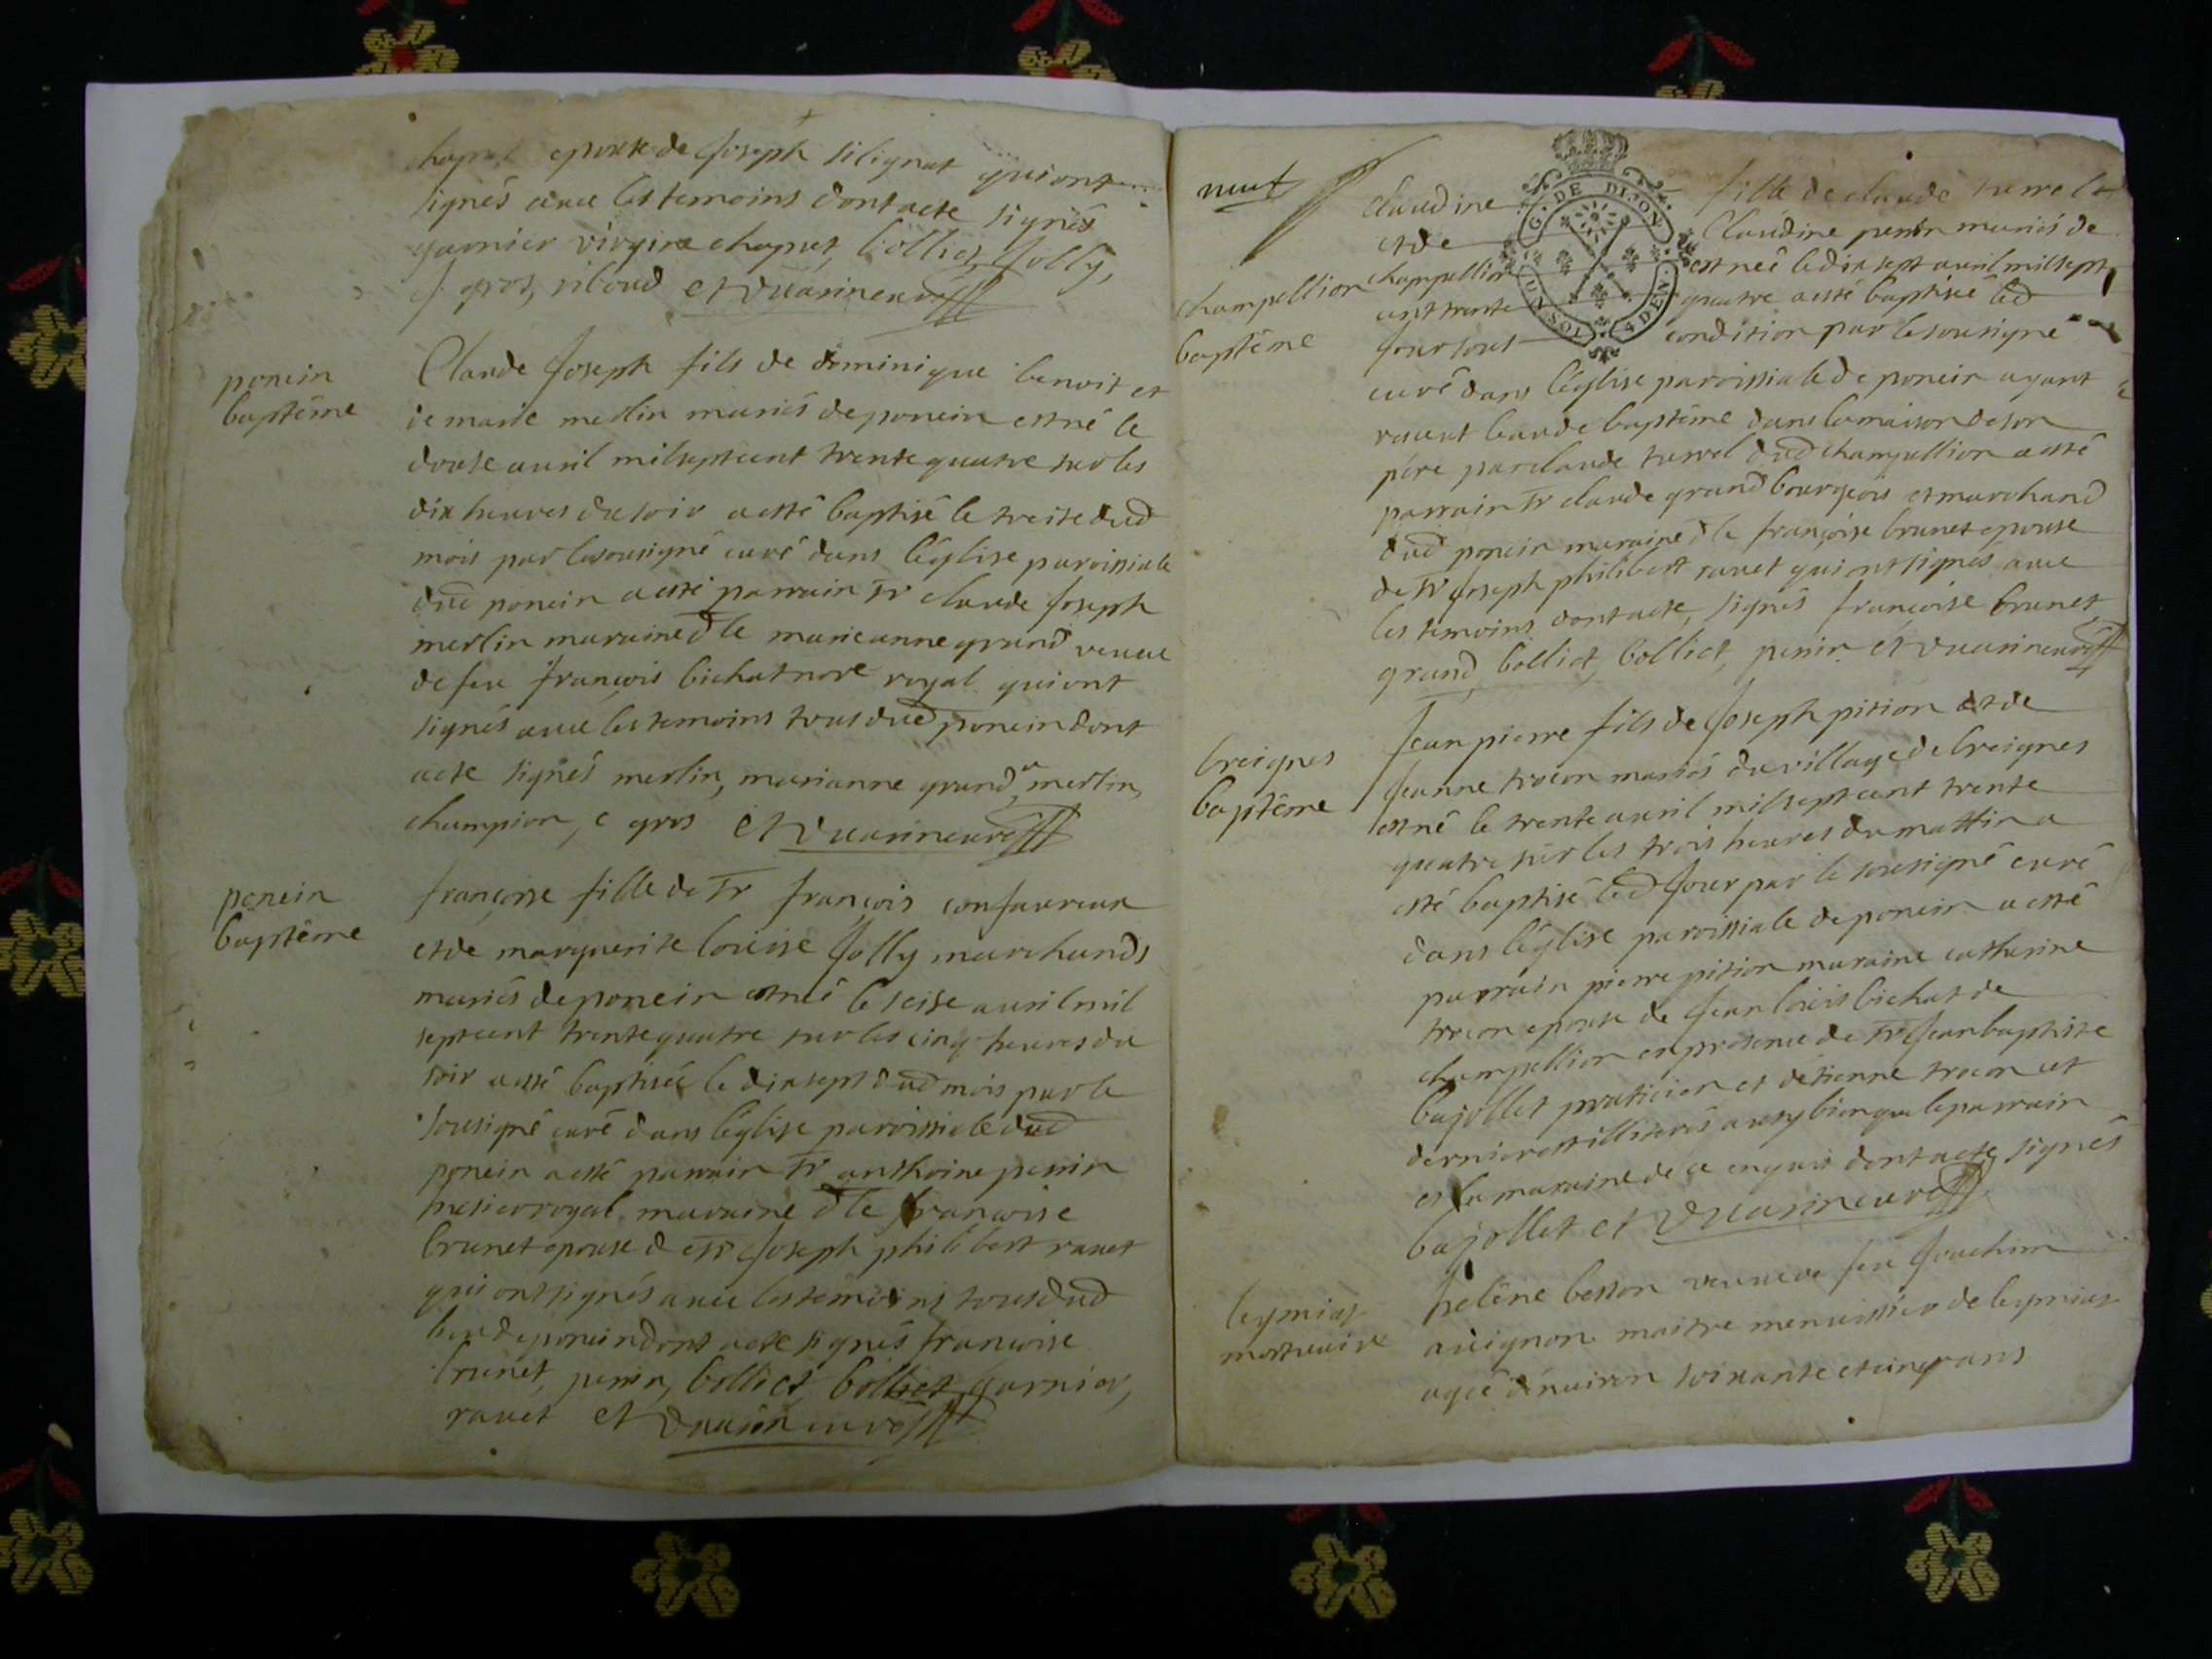 chaput epouse de Joseph silignat qui ont
signés avec les temoins dont acte signés
garnier virginie chaput, bolliet, Jolly,
J gros, riboud et vuarin curé
poncin
baptême
Claude Joseph fils de dominique benoit et
de marie merlin mariés de poncin est né le
douse auril mil sept cent trente quatre sur les
dix heures du soir a esté baptisé le treise dud
mois par le sousigné curé dans léglise paroissiale
dud poncin a esté parrain Sr claude Joseph
merlin maraine dlle marie anne grand veuve
de feu françois bichat nore royal qui ont
signés avec les temoins tous dud poncin dont
acte signés merlin, marianne grand, merlin,
champion, c gros et vuarin curé
poncin
baptême
françoise fille de Sr françois confavreux
et de marguerite loüise Jolly marchands
mariés de poncin est née le seise auril mil
sept cent trente quatre sur les cinq heures du
soir a esté baptisée le dix sept dud mois par le
sousigné curé dans léglise paroissiale dud
poncin a esté parrain Sr anthoine penin
huissier royal maraine dlle françoise
brunet epouse de Sr Joseph philibert ravet
qui ont signés avec les temoins tous dud
lieu de poncin dont acte signés françoise
brunet, penin, bolliet, bolliet, garnier,
ravet et vuarin curé
neuf
G. DE DIJON
UN SOL 4 DEN
champellion
baptême
Claudine fille de claude
et de Claudine penin mariés de
champellion est née le dix sept auril mil sept
cent trente quatre a esté baptisée led
Jour sous condition par le sousigné
curé dans léglise paroissiale de poncin ayant
receut leau de baptême dans la maison de son
père par claude turrel dud champellion a esté
parrain Sr claude grand bourgeois et marchand
dud poncin maraine dlle françoise brunet epouse
de Sr Joseph philibert ravet qui ont signés avec
les temoins dont acte, signés françoise brunet,
grand, bolliet, bolliet, penin et vuarin curé
breignes
baptême
Jean pierre fils de Joseph pition et de
Jeanne trocon mariés du village de breignes
est né le trente auril mil sept cent trente
quatre sur les trois heures du mattin a
esté baptisé led Jour par le sousigné curé
dans léglise paroissiale de poncin a esté
parrain pierre pition maraine catherine
trocon epouse de Jean loüis bichat de
champellion en présence de Sr Jean baptiste
bajollet praticien et détienne trocon cet
dernier est illiterés aussy bien que le parrain
et la maraine de ce enquis dont acte signés
bajollet et vuarin curé
leymiat
mortuaire
helêne besson veuve de feu Joachim
avignon maitre menuissier de leymiat
agée dénuiron soixante et cinq ans